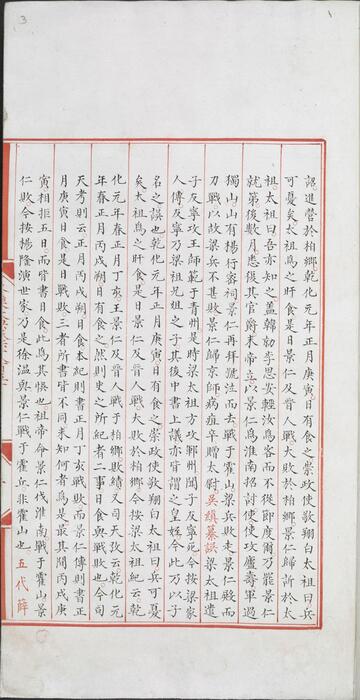 詔進營於柏鄉乾化元年正月庚寅日有食之崇政使敬翔白太祖曰兵
可憂矣太祖爲之旰食是日景仁及晉人戰大敗於柏鄉景仁歸訴於太
祖太祖曰吾亦知之盖韓勍李思安輕汝爲客而不從節度爾乃罷景仁
就第後數月悉復其官爵末帝立以景仁爲淮南招討使使攻廬壽軍過
獨山山有楊行密祠景仁再拜號泣而去戰于霍山梁兵敗走景仁殿而
刀戰以故梁兵不甚敗景仁歸京師病疽卒贈太尉吳縝纂誤梁太祖遣
子友寧攻王師範于青州是時梁太祖方攻鄆州聞子友寧死今按梁家
人傳友寧乃梁祖兄姐之子其後中書上議亦皆謂之皇姪今此乃以子
名之誤也乾化元年正月庚寅日有食之崇政使敬翔白太祖曰兵可憂
矣太祖爲之旰食是日景仁及晉人戰大敗於柏鄉今按梁太祖紀云乾
化元年春正月丁亥王景仁及晉人戰于柏鄉敗績又司天攷云乾化元
年春正月丙戌朔日有食之然則史之所紀者二事日食與戰敗也今司
天考則云正月丙戌朔日食本紀則書正月丁亥戰敗而景仁傳則書正
月庚寅日食是日戰敗三者所書皆不同未知何者爲是最其間丙戌庚
寅相拒五日而皆書日食此爲其悞也祖帝命景仁伐淮南戰于霍山景
仁敗今按楊隆演世家乃是徐溫與景仁戰于霍丘非霍山也五代薛
3